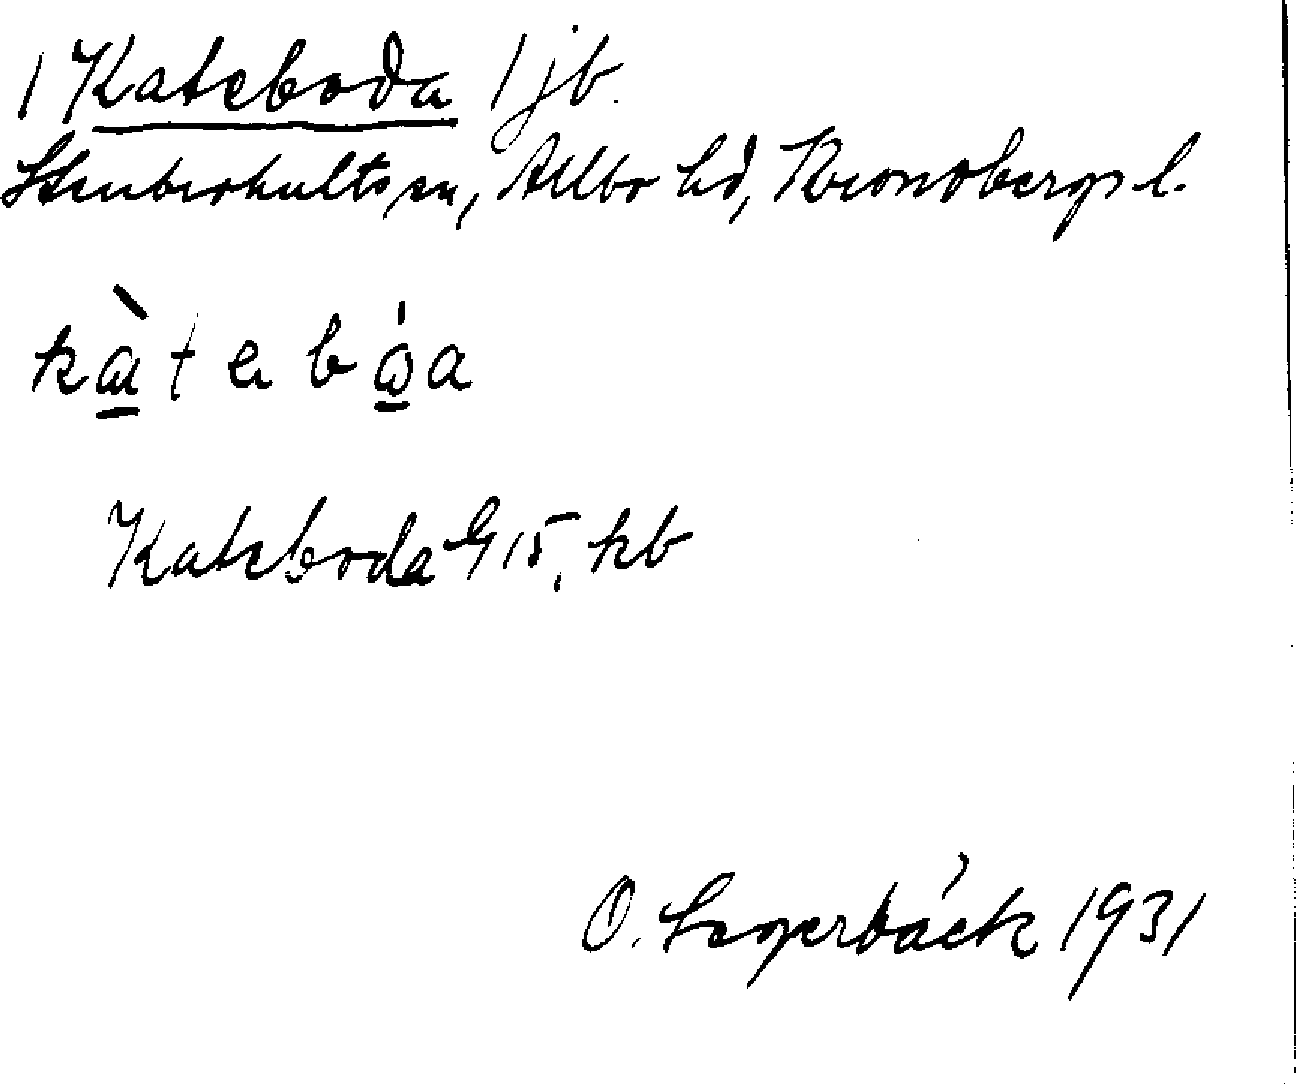 / Kateboda / jb.
Stenbrohults sn, Allbo hd, Kronobergs l.
kàtebóa
Kateboda G 15, kb
O. Lagerbäck 1931